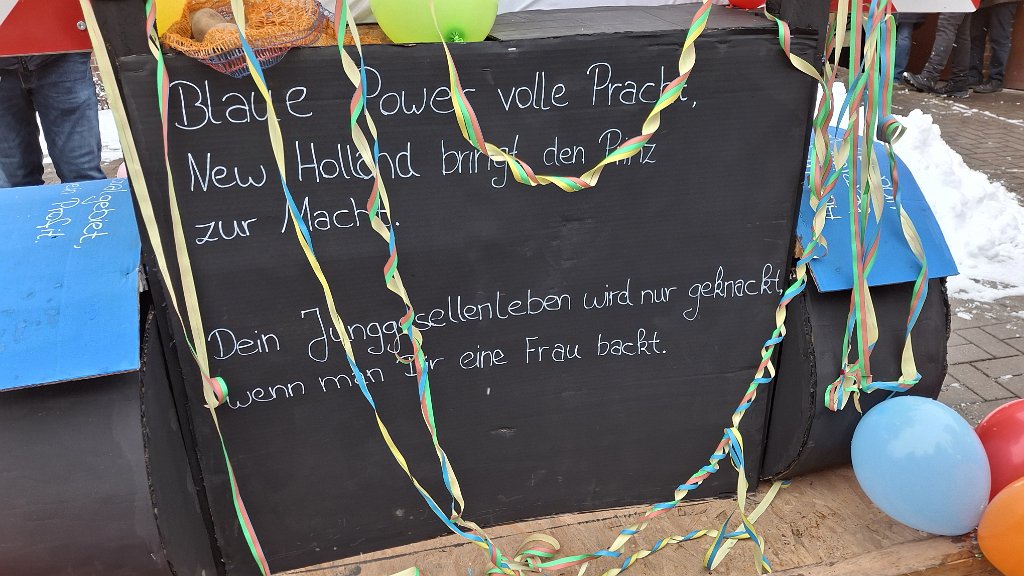 Blaue Power volle Pracht,
New Holland bringt den Prinz
zur Macht.
Dein Junggesellenleben wird nur geknackt,
wenn man Dir eine Frau backt.